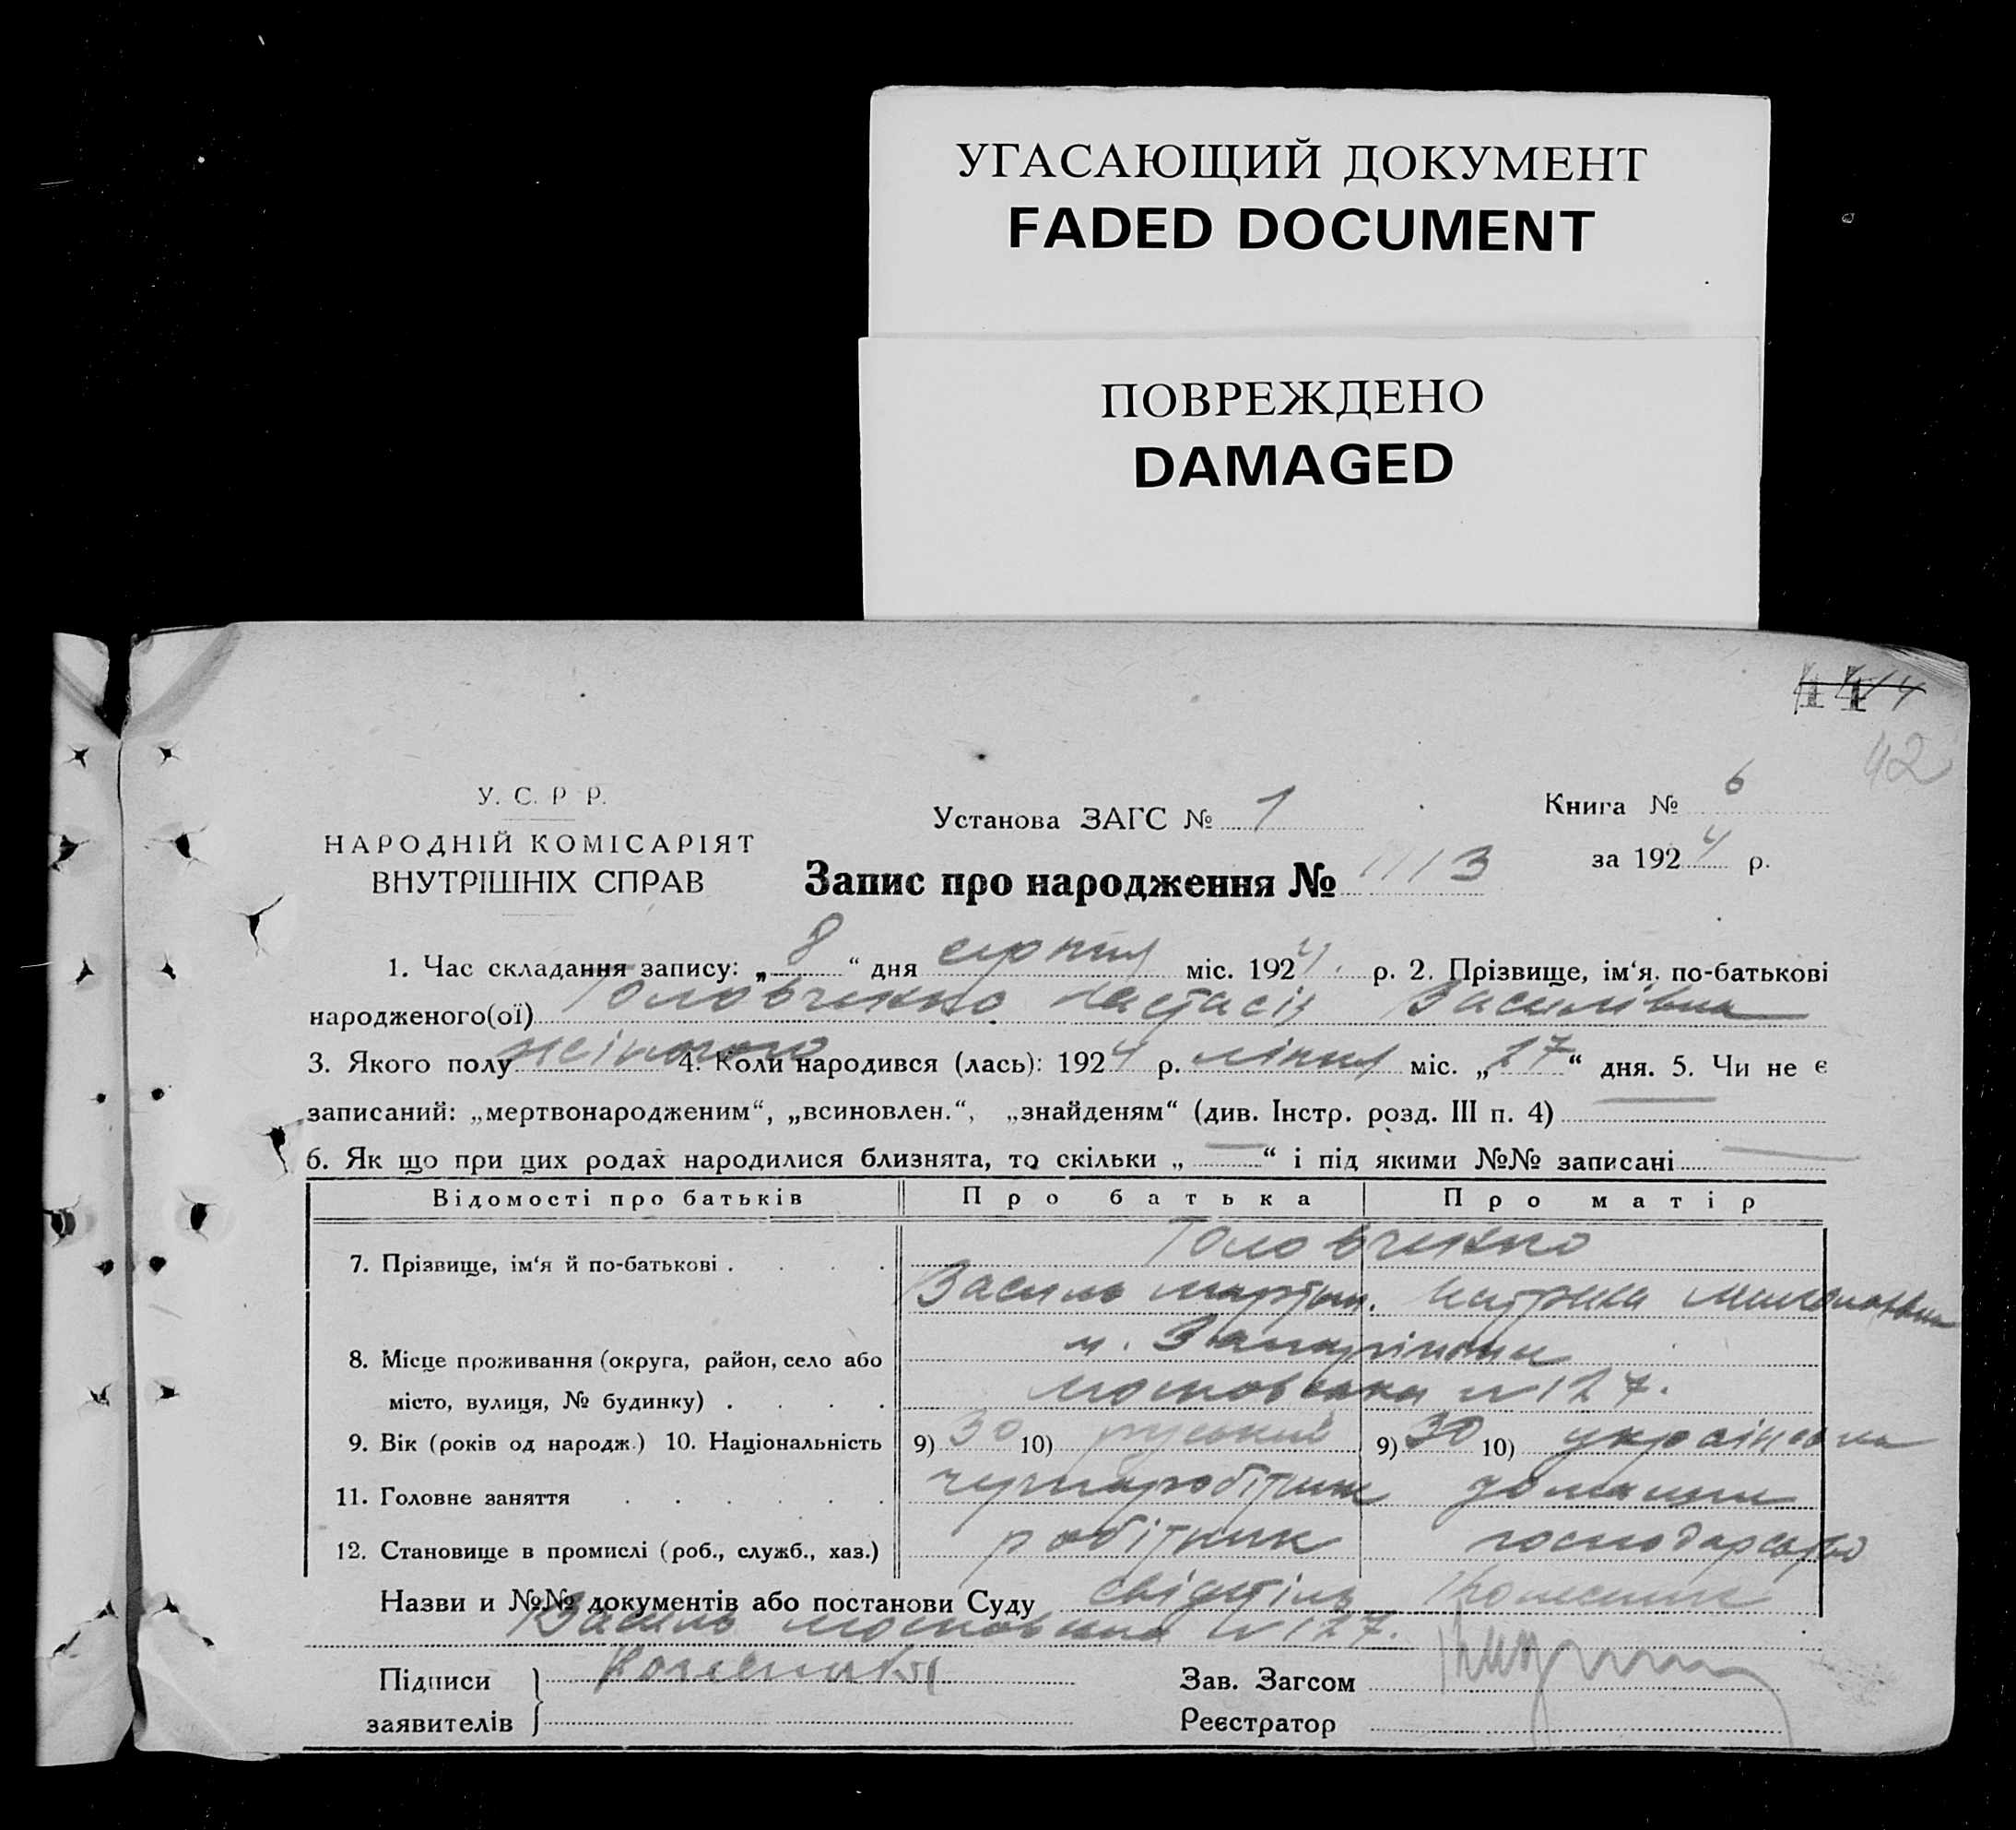 УГАСАЮЩИЙ ДОКУМЕНТ
FADED DOCUMENT
ПОВРЕЖДЕНО
DAMAGED
42
У. С. Р. Р.
НАРОДНІЙ КОМІСАРІЯТ
ВНУТРІШНІХ СПРАВ
Установа ЗАГС № 1
Книга № 6
за 1924 р.
Запис про народження № 1113
1. Час складання запису: „ 8 “ дня серпня міс. 1924 р. 2. Прізвище, ім‘я, по-батькові
народженого(ої) Головченко Настасія Василівна
3. Якого полу жіночого 4. Коли народився (лась): 1924 р. липня міс. „ 27 “ дня. 5. Чи не є
записаний: „мертвонародженим“, „всиновлен.“, „знайденям“ (див. Інстр. розд. III п. 4)
6. Як що при цих родах народилися близнята, то скільки „ — “ і під якими №№ записані —
Відомості про батьків Про батька Про матір
7. Прізвище, ім‘я й по-батькові Головченко
Василь Мартин.
8. Місце проживання (округа, район, село або м.
місто, вулиця, № будинку) Московська № 127.
9. Вік (років од народж.) 10. Національність 9) 30 10) руський 9) 30 10) українська
11. Головне заняття чернаробітник домашнє
12. Становище в промислі (роб., служб., хаз.) робітник господарство
Назви и №№ документів або постанови Суду свідетіль
Василь Московська № 127.
Підписи
заявителів
Зав. Загсом
Реєстратор